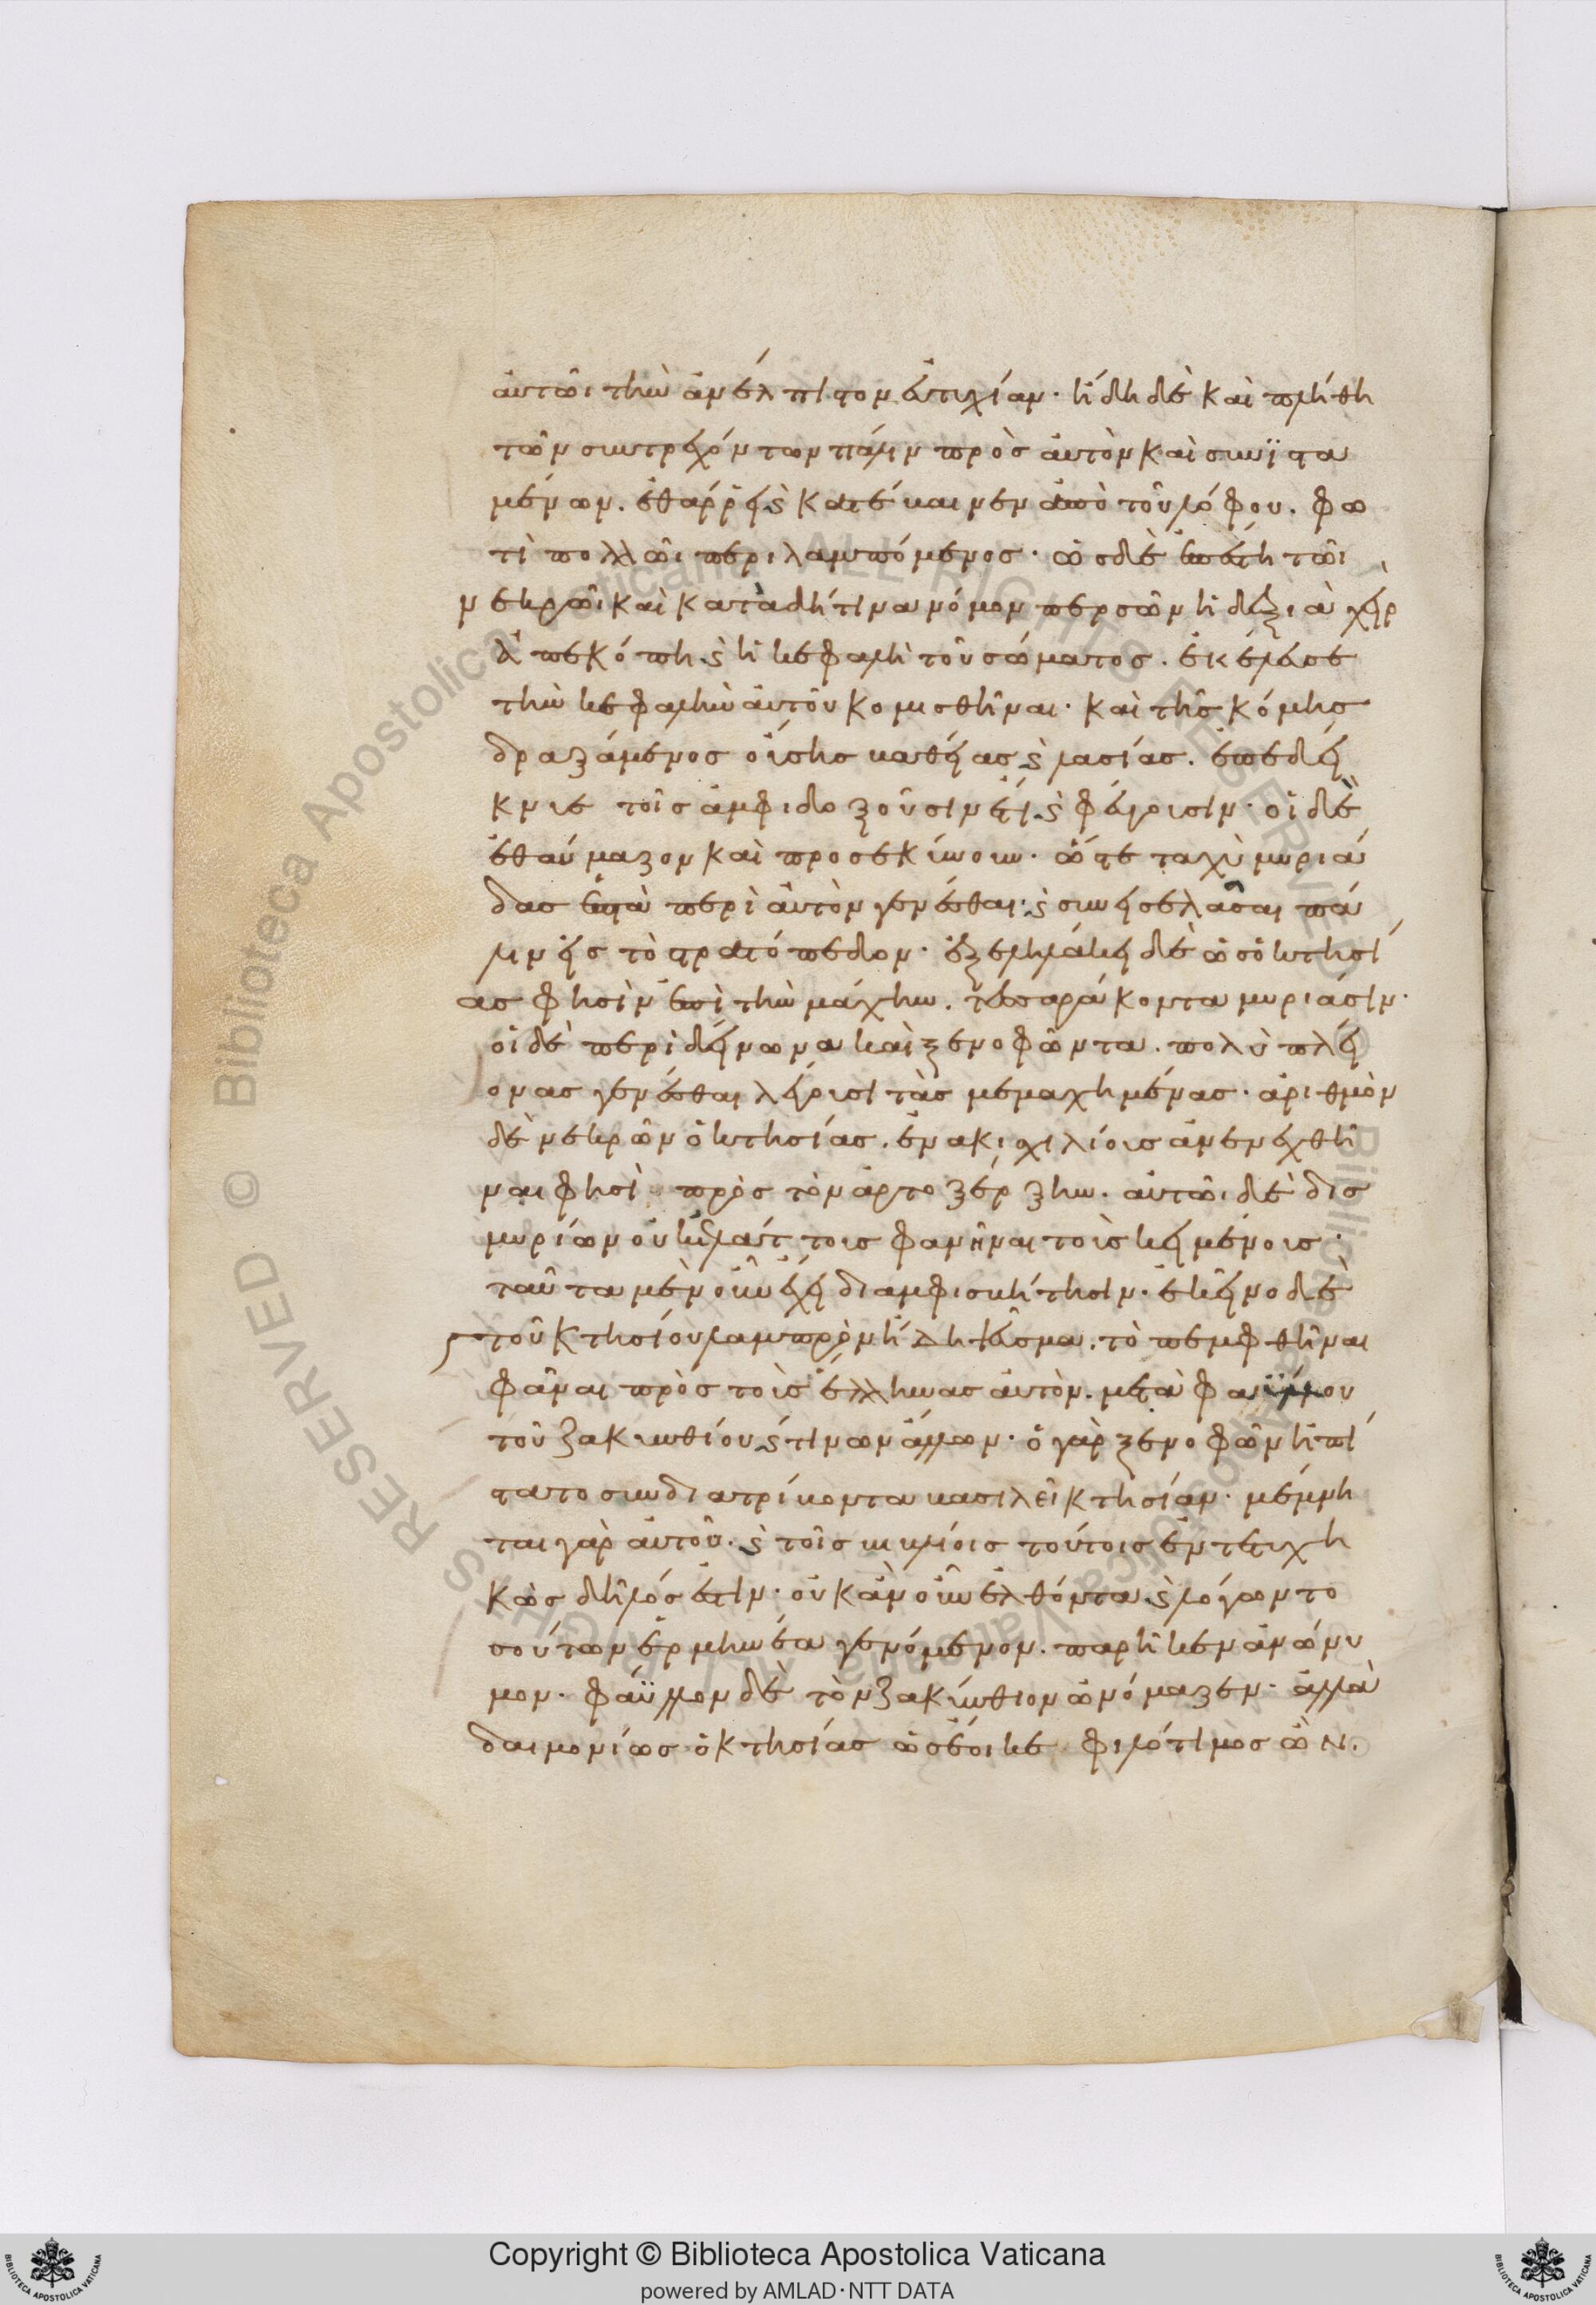 αὐτῶι τὴν ἀνέλπιστον εὐτυχίαν· ἤδη δὲ καὶ πλήθει
τῶν συντρεχόντων πάλιν πρὸς αὐτὸν καὶ συνϊστα
μένων. ἐθάρρει καὶ κατέβαινεν ἀπὸ τοῦ λόφου. φω
τὶ πολλῶι περιλαμπόμενος· ὡς δὲ ἐπέστη τῶι
νεκρῶι καὶ κατὰ δή τινα νόμον περσῶν ἡ δεξιὰ χεὶρ
ἀπεκόπη καὶ ἡ κεφαλὴ τοῦ σώματος. ἐκέλευσε
τὴν κεφαλὴν αὐτοῦ κομισθῆναι· καὶ τῆς κόμης
δραξάμενος οὔσης βαθείας καὶ λασίας. ἐπεδεί
κνυε τοῖς ἀμφιδοξοῦσιν ἔτι καὶ φεύγουσιν· οἱ δὲ
ἐθαύμαζον καὶ προσεκύνουν· ὥστε ταχὺ μυριά
δας ἑπτὰ περὶ αὐτὸν γενέσθαι· καὶ συνεισελάσαι πά
λιν εἰς τὸ στρατόπεδον· ἐξεληλάκει δὲ ὡς ὁ κτησί
ας φησὶν ἐπὶ τὴν μάχην. τεσσαράκοντα μυριάσιν·
οἱ δὲ περὶ δείνωνα καὶ ξενοφῶντα. πολὺ πλεί
ονας γενέσθαι λέγουσι τὰς μεμαχημένας· ἀριθμὸν
δὲ νεκρῶν ὁ κτησίας. ἐνακισχιλίους ἀνενεχθῆ
ναι φησὶ πρὸς τὸν ἀρτοξέρξην. αὐτῶι δὲ δισ
μυρίων οὐκ ἐλάττους φανῆναι τοὺς κειμένους·
ταῦτα μὲν οὖν ἔχει διαμφισβήτησιν· ἐκεῖνο δὲ
τοῦ κτησίου λαμπρὸν ἤδη ψεῦσμα. τὸ πεμφθῆναι
φάναι πρὸς τοὺς ἕλληνας αὐτὸν. μετὰ φαΰλλου
τοῦ ζακυνθίου καὶ τινων ἄλλων· ὁ γὰρ ξενοφῶν ἠπί
στατο συνδιατρίβοντα βασιλεῖ κτησίαν· μέμνη
ται γὰρ αὐτοῦ· καὶ τοῖς βιβλίοις τούτοις ἐντετυχη
κὼς δῆλός ἐστιν· οὐκ ἂν οὖν ἐλθόντα καὶ λόγων το
σούτων ἑρμηνέα γενόμενον. παρῆκεν ἀνώνυ
μον· φάϋλλον δὲ τὸν ζακύνθιον ὠνόμαζεν· ἀλλὰ
δαιμονίως ὁ κτησίας ὡς ἔοικε φιλότιμος ὢν.
Copyright © Biblioteca Apostolica Vaticana
powered by AMLAD·NTT DATA